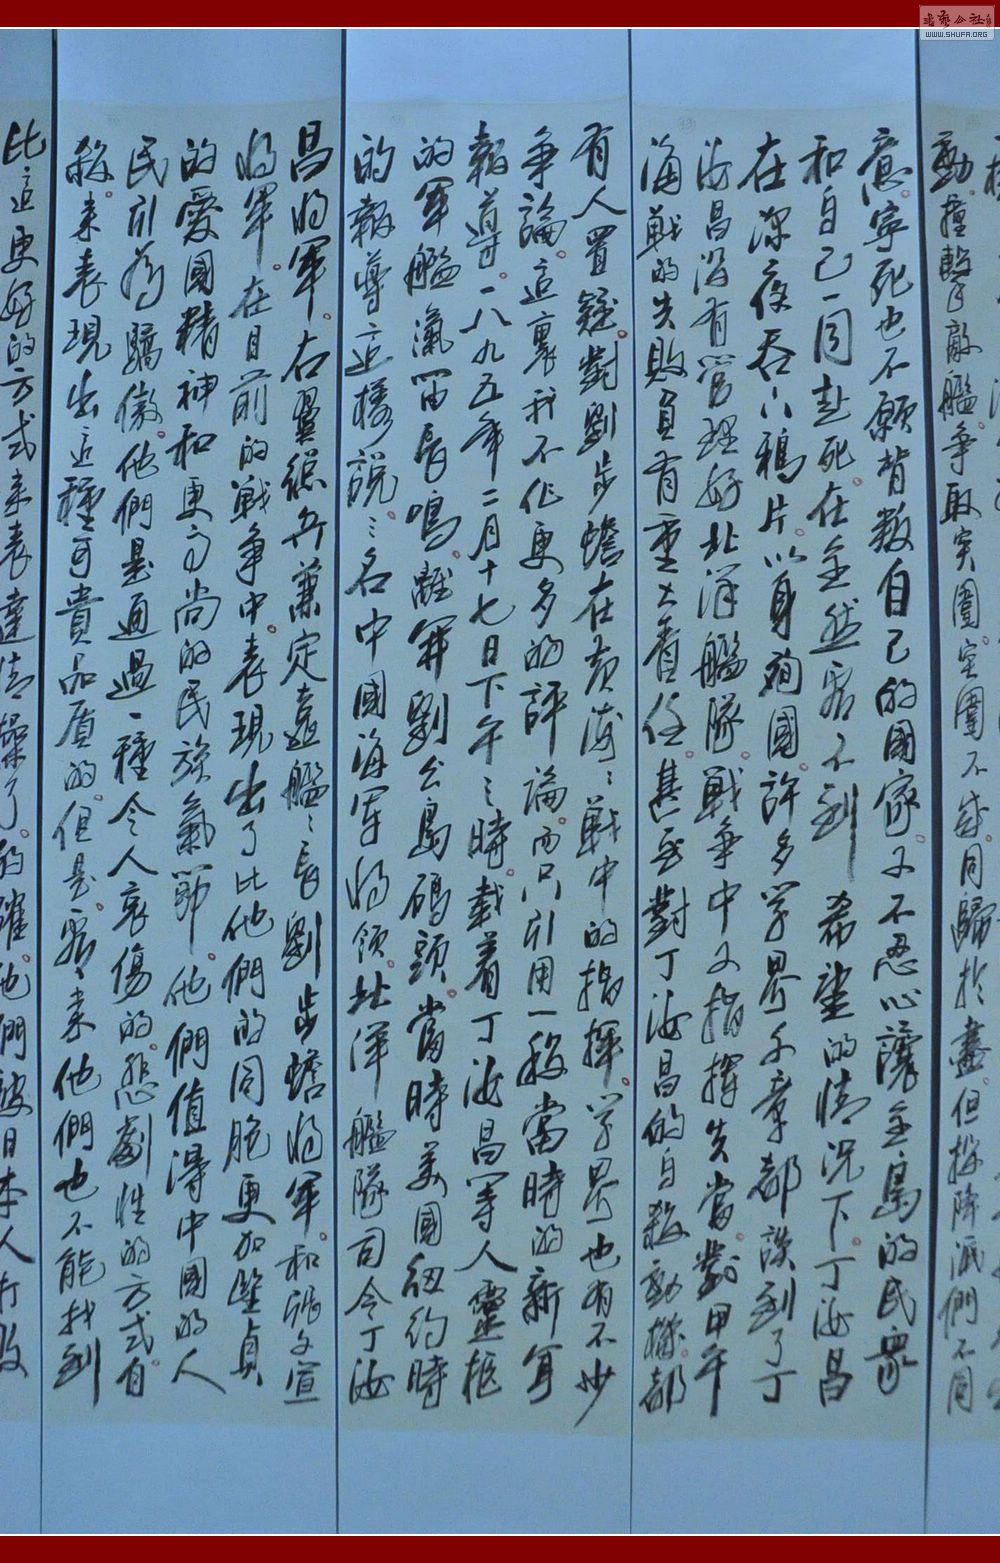 書藝公社
WWW.SHUFA.ORG
動撞擊敵艦爭取突圍突圍不成同歸於盡但投降派們不同
意寧死也不願背叛自己的國家又不忍心讓全島的民眾
和自己一同赴死在全然看不到希望的情況下丁汝昌
在深夜吞下鴉片以身殉國許多學界文章都談到了丁
汝昌沒有管理好北洋艦隊戰爭中又指揮失當對甲午
海戰的失敗負有重大責任甚至對丁汝昌的自殺動機都
有人置疑對劉步蟾在黃海〻戰中的指揮學界也有不少
爭論這裏我不作更多的評論而只引用一段當時的新聞
報導一八九五年二月十七日下午三時載着丁汝昌等人靈柩
的軍艦汽笛長鳴離開劉公島碼頭當時美國紐約時
的報導這樣說三名中國海軍將領北洋艦隊司令丁汝
昌將軍右翼總兵兼定遠艦〻長劉步蟾將軍和張文宣
將軍在目前的戰爭中表現出了比他們的同胞更加堅貞
的愛國精神和更高尚的民族氣節他們值得中國的人
民引為驕傲他們是通過一種令人哀傷的悲劇性的方式自
殺來表現出這種可貴品質的但是看來他們也不能找到
比這更好的方式來表達情操了的確他們被日本人打敗